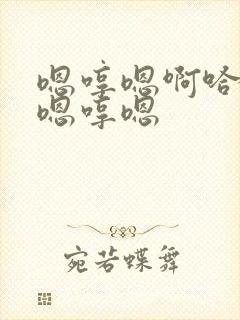 嗯哼嗯啊哈
嗯哼嗯
宛若蝶舞